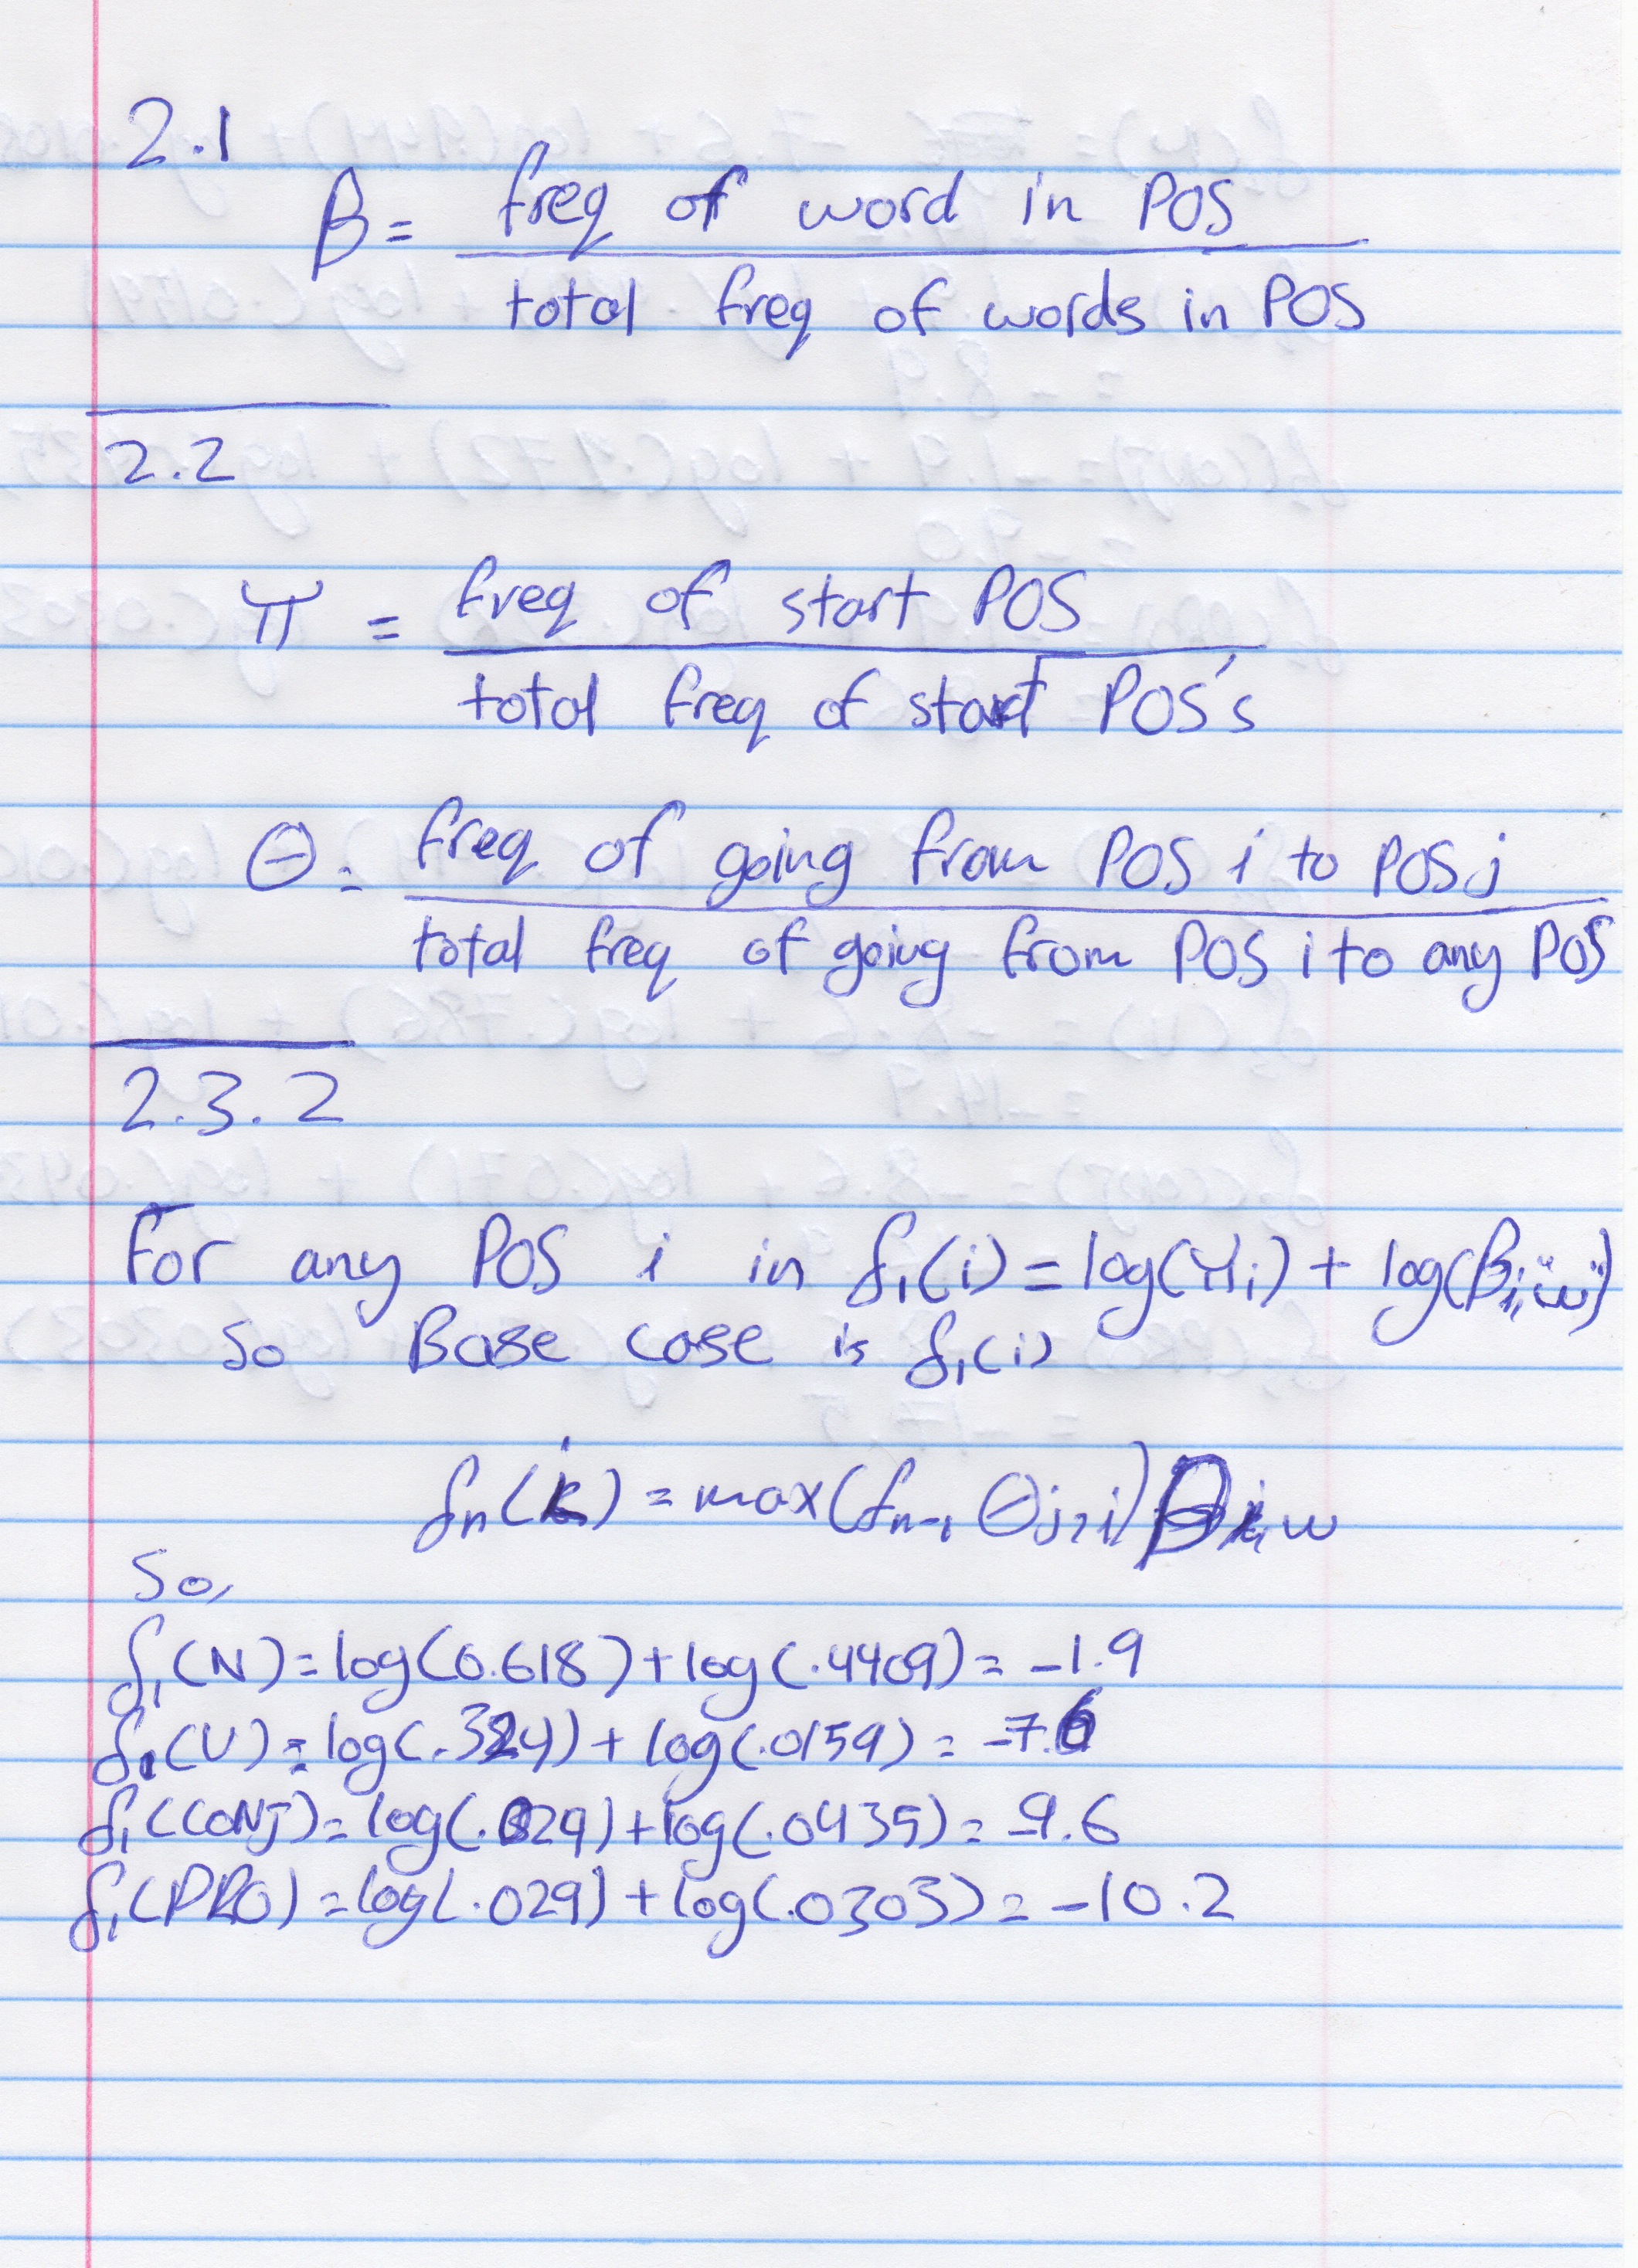 2.1
β = freq of word in POS
total freq of words in POS
2.2
π = freq of start POS
total freq of start POS's
θ = freq of going from POS i to POS j
total freq of going from POS i to any POS
2.3.2
For any POS i in f₁(i) = log(πi) + log(βi,"w")
So Base case is f₁(i)
fn(i) = max(fn-1 θj,i) βi,w
So,
f₁(N) = log(0.618) + log(.4409) = -1.9
f₁(V) = log(.324) + log(.0159) = -7.6
f₁(CONJ) = log(.029) + log(.0435) = -9.6
f₁(PRO) = log(.029) + log(.0303) = -10.2